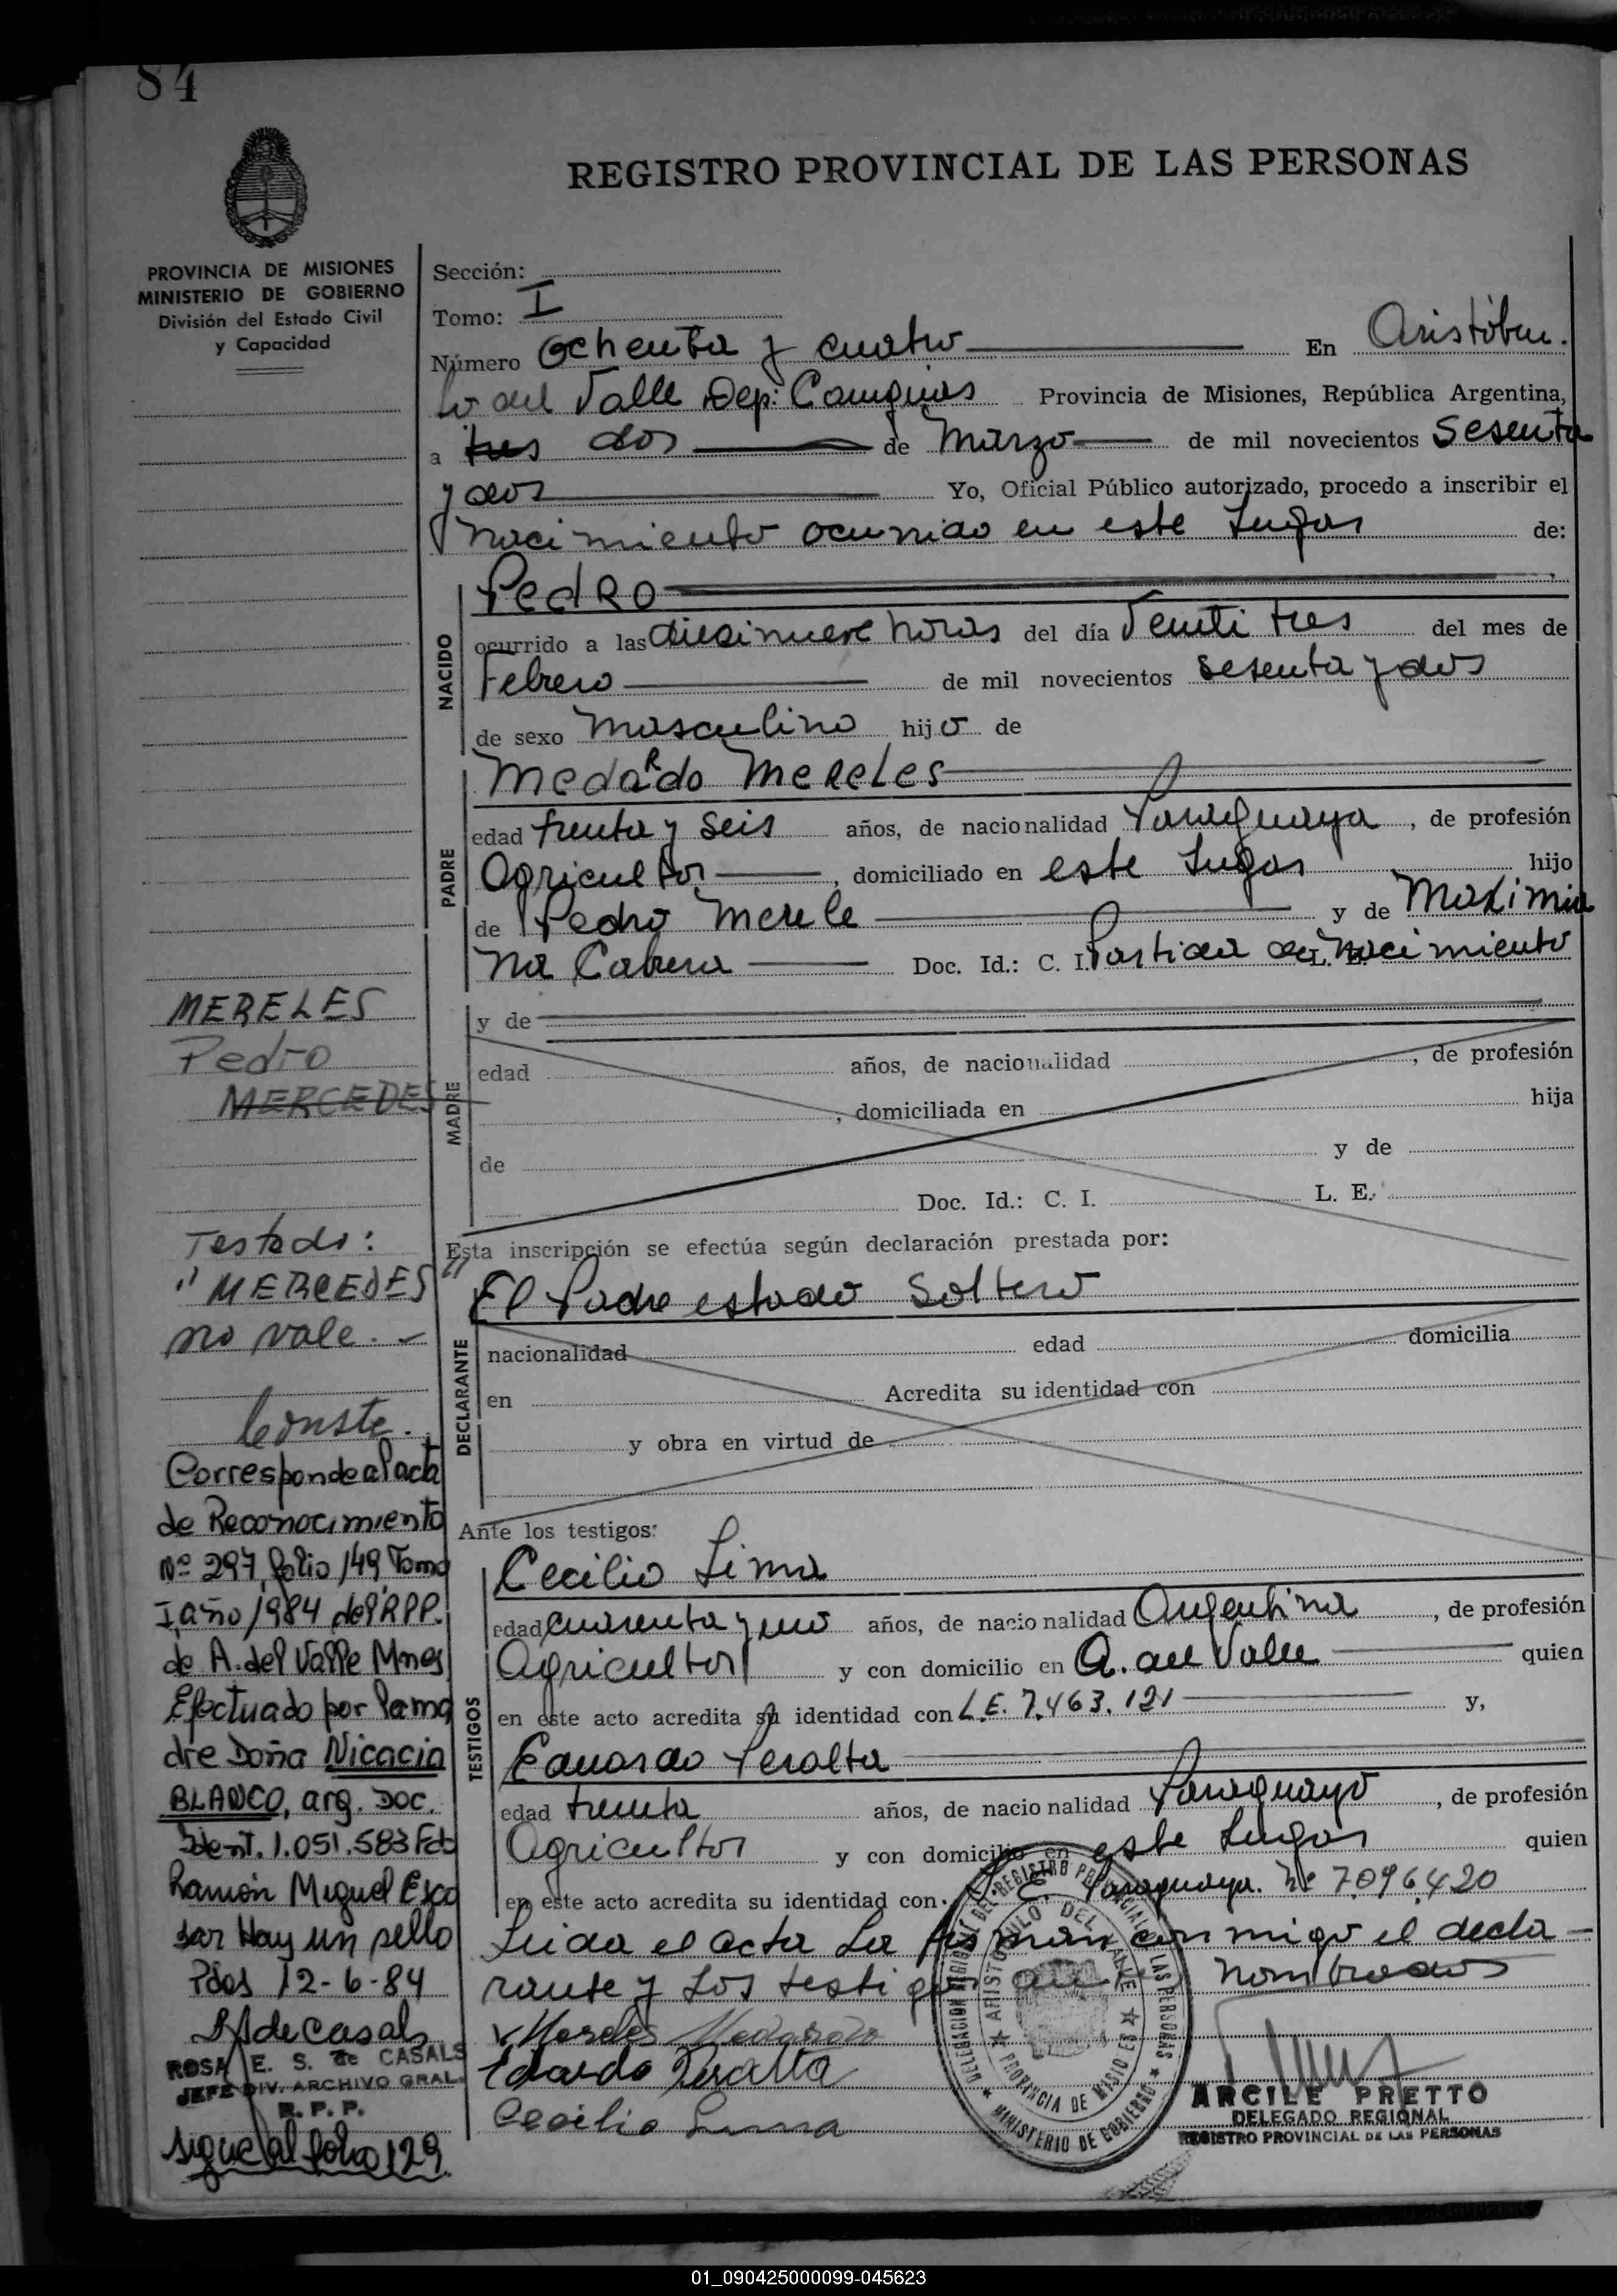 84
REGISTRO PROVINCIAL DE LAS PERSONAS
PROVINCIA DE MISIONES
MINISTERIO DE GOBIERNO
División del Estado Civil
y Capacidad
Sección:
Tomo: I
Número Ochenta y cuatro En Aristóbu
lo del Valle Dep: Cainguas Provincia de Misiones, República Argentina,
a tres dos de Marzo de mil novecientos Sesenta
y dos Yo, Oficial Público autorizado, procedo a inscribir el
Nacimiento ocurrido en este Lugar de:
NACIDO
Pedro
ocurrido a las diecinueve horas del día Veinti tres del mes de
Febrero de mil novecientos sesenta y dos
de sexo Masculino hijo de
PADRE
Medardo Mereles
edad treinta y Seis años, de nacionalidad Paraguaya, de profesión
Agricultor, domiciliado en este Lugar hijo
de Pedro Merele y de Maximia
na Cabrera Doc. Id.: C. I. Partida de Nacimiento
MERELES
Pedro
MERCEDES
MADRE
y de
edad años, de nacionalidad, de profesión
, domiciliada en hija
de y de
Doc. Id.: C. I. L. E.
Testado:
"MERCEDES"
no vale.-
Conste.
Esta inscripción se efectúa según declaración prestada por:
DECLARANTE
El Padre estado Soltero
nacionalidad edad domicilia
en Acredita su identidad con
y obra en virtud de
Corresponde al acta
de Reconocimiento
Nº 297 folio 149 Tomo
I, año 1984 del R.P.P.
de A. del Valle Mnes
Efectuado por la ma
dre Doña Nicacia
BLANCO, arg. Doc.
Ident. 1.051.583 Fdo
Ramón Miguel Esco
bar Hay un sello
Pdas 12-6-84
R A de Casals
ROSA E. S. de CASALS
JEFE DIV. ARCHIVO GRAL.
R. P. P.
sigue al folio 129.
Ante los testigos:
TESTIGOS
Cecilio Lima
edad cuarenta y uno años, de nacionalidad Argentina, de profesión
Agricultor y con domicilio en A. del Valle quien
en este acto acredita su identidad con L.E. 7.463.121 y,
Eduardo Peralta
edad treinta años, de nacionalidad Paraguayo, de profesión
Agricultor y con domicilio en este Lugar quien
en este acto acredita su identidad con Paraguaya. Nº 7096420
Leida el acta La firman con migo el decla-
rante y Los testigos nombrados
Mereles Medardo
Edardo Peralta
Cecilio Lima
DELEGACION REGIONAL DEL REGISTRO PROVINCIAL DE LAS PERSONAS
ARISTOBULO DEL VALLE
PROVINCIA DE MISIONES
MINISTERIO DE GOBIERNO
ARCILE PRETTO
DELEGADO REGIONAL
REGISTRO PROVINCIAL DE LAS PERSONAS
01_090425000099-045623